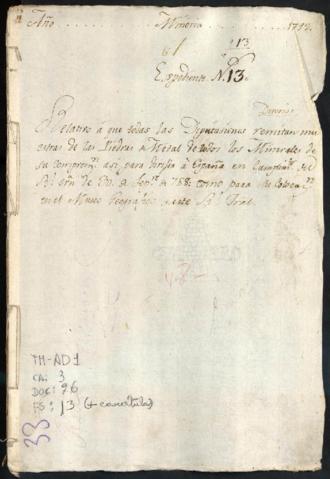 Año Mineria 1792
13
Expediente N.13.
Relativo à que todas las Diputaciones remitan mu
estras de las Piedras de Metal de todos los Minerales de
su comprenn. asi para dirigir à España en Cumplimto. de
Rl. orn. de de Sepre. de 788: como para
en el Museo Geografico de este Rl. Tral.
TM-AD1
CA: 3
DOC: 26
FS: 13 (+ carátula)
33